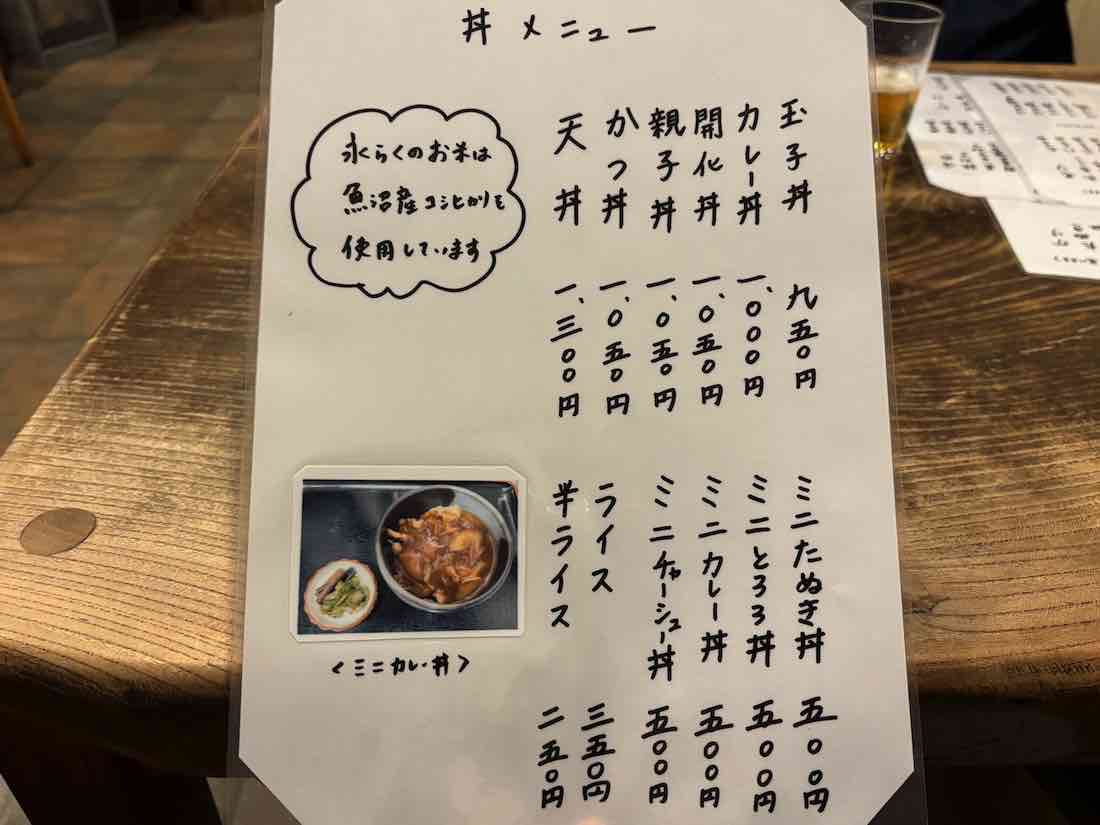 丼メニュー
玉子丼 九五〇円
カレー丼 一、〇〇〇円
開化丼 一、〇五〇円
親子丼 一、〇五〇円
かつ丼 一、〇五〇円
天丼 一、三〇〇円
永らくのお米は
魚沼産コシヒカリを
使用しています
ミニたぬき丼 五〇〇円
ミニとろろ丼 五〇〇円
ミニカレー丼 五〇〇円
ミニチャーシュー丼 五〇〇円
ライス 三五〇円
半ライス 二五〇円
<ミニカレー丼>